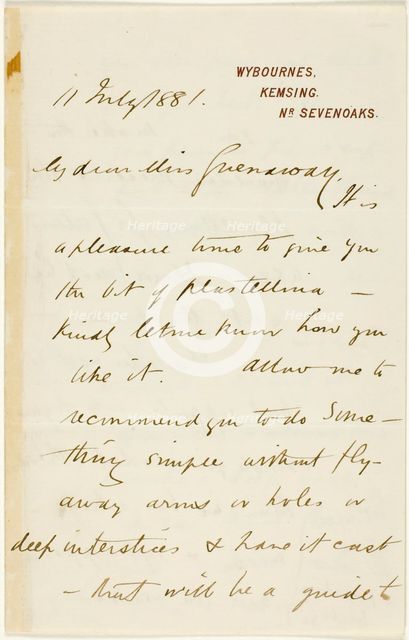 WYBOURNES,
KEMSING.
Nr SEVENOAKS.
11 July 1881.
My dear Miss Greenaway
It is
a pleasure to me to give you
the bit of plastellina —
kindly let me know how you
like it. Allow me to
recommend you to do some-
thing simple without fly-
away arms or holes or
deep interstices & have it cast
– that will be a guide to